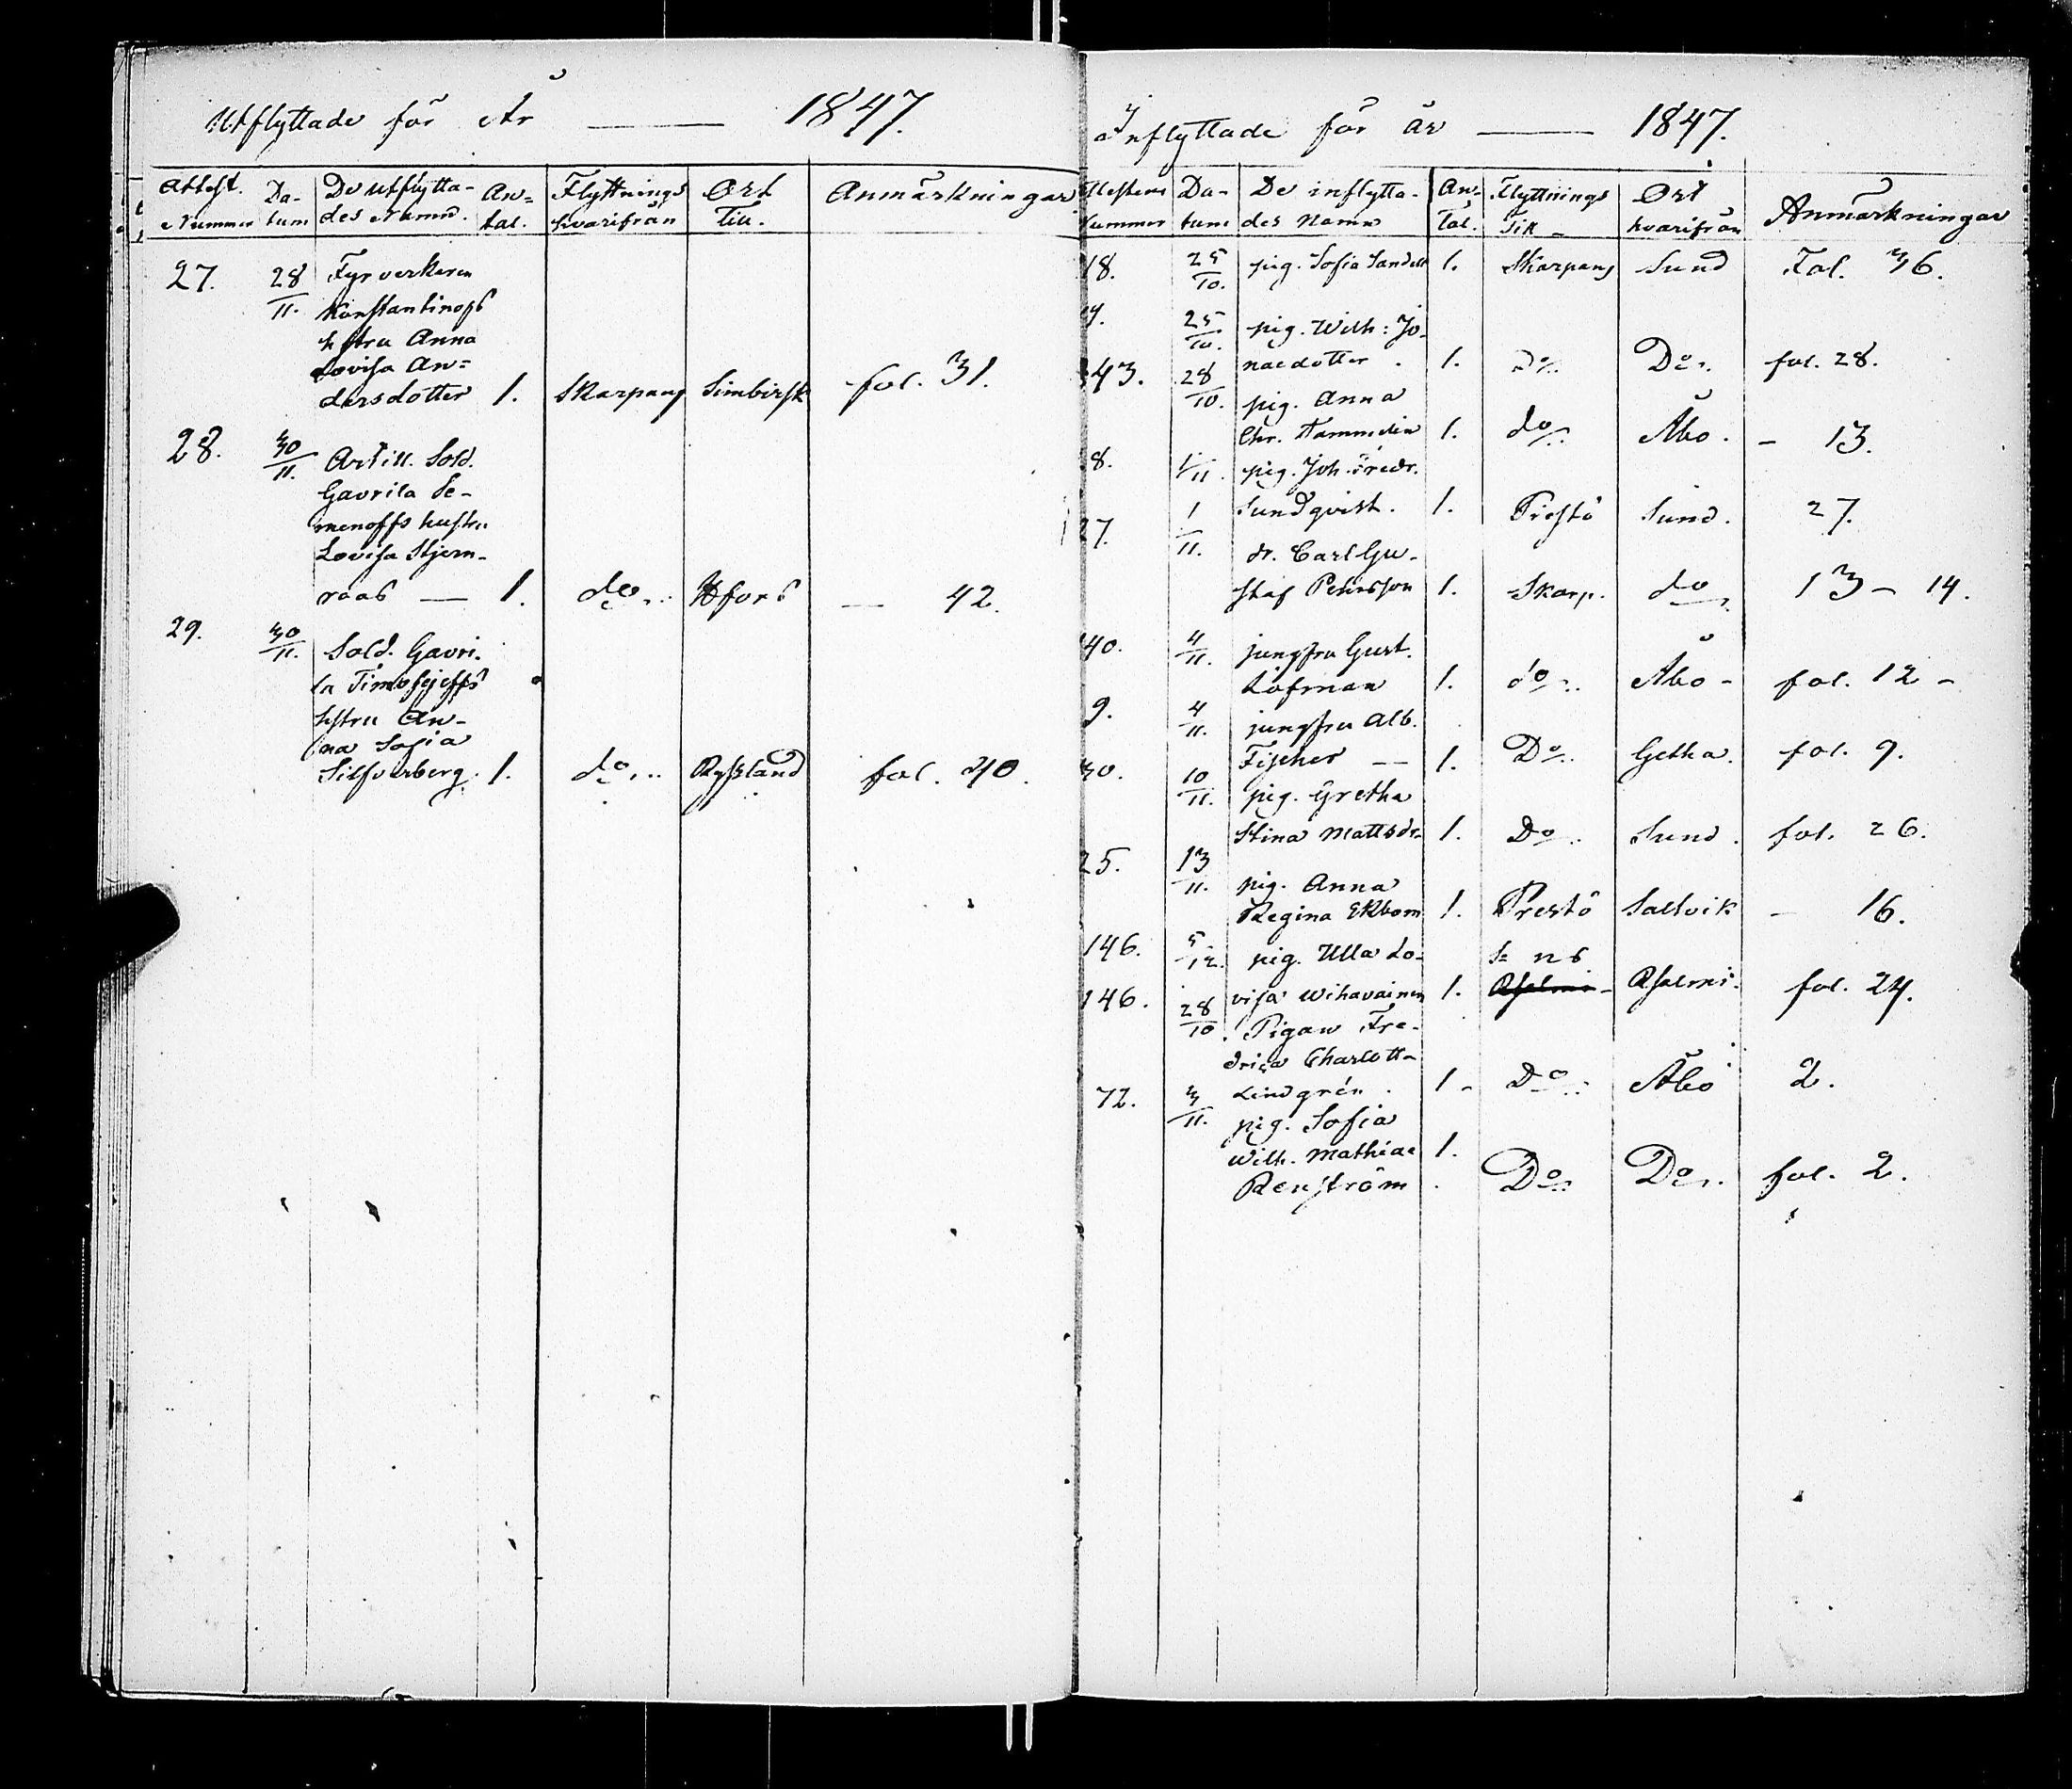 Utflyttade för År — 1847.
Attest. Nummer | Da-tum | De utflytta-des Namn. | An-tal. | Flyttnings hvarifrån | Ort Till. | Anmärkningar
27. 28/11. Fyrverkeren
Konstantinoffs
hstru Anna
Lovisa An-
dersdotter 1. Skarpans Simbirsk fol. 31.
28. 30/11. Artill. Sold.
Gavrila Se-
menoffs hustru
Lovisa Stjern-
raas — 1. do. Hfors — 42.
29. 30/11. Sold. Gavri-
la Timofejeffs
hstru An-
na Sofia
Silfverberg. 1. do. Ryssland fol. 40.
Inflyttade för år — 1847.
Attestens Nummer | Da-tum | De inflytta-des Namn | An-tal. | Flyttnings Till | Ort hvarifrån | Anmärkningar
18. 25/10. pig. Sofia Sandell 1. Skarpans Sund Fol. 36.
25/10. pig. Wilh: Jo-
naedotter. 1. do. Do. fol. 28.
43. 28/10. pig. Anna
Chr. 1. do. Åbo. – 13.
8. 1/11. pig. Joh. Fredr.
Sundqvist. 1. Prestö Sund. 27.
27. 1/11. dr. Carl Gu-
staf Pehrsson 1. Skarp. do 13 – 14.
40. 4/11. jungfru Gust.
Löfman 1. do. Åbo – fol. 12 –
9. 4/11. jungfru Alb.
Fischer — 1. Do. Getha. fol. 9.
30. 10/11. pig. Gretha
Stina Mattsdr 1. Do. Sund. fol. 26.
25. 13/11. pig. Anna
Regina Ekbom 1. Prestö Saltvik – 16.
146. 5/12. pig. Ulla Lo-
visa Wihavainen 1. fol. 24.
146. 28/10. Pigan Fre-
drica Charlott-
Lindgrén. 1 – Do. Åbo 2.
72. 3/11. pig. Sofia
Wilh. Mathiae 1.
Renström Do. Do. fol. 2.